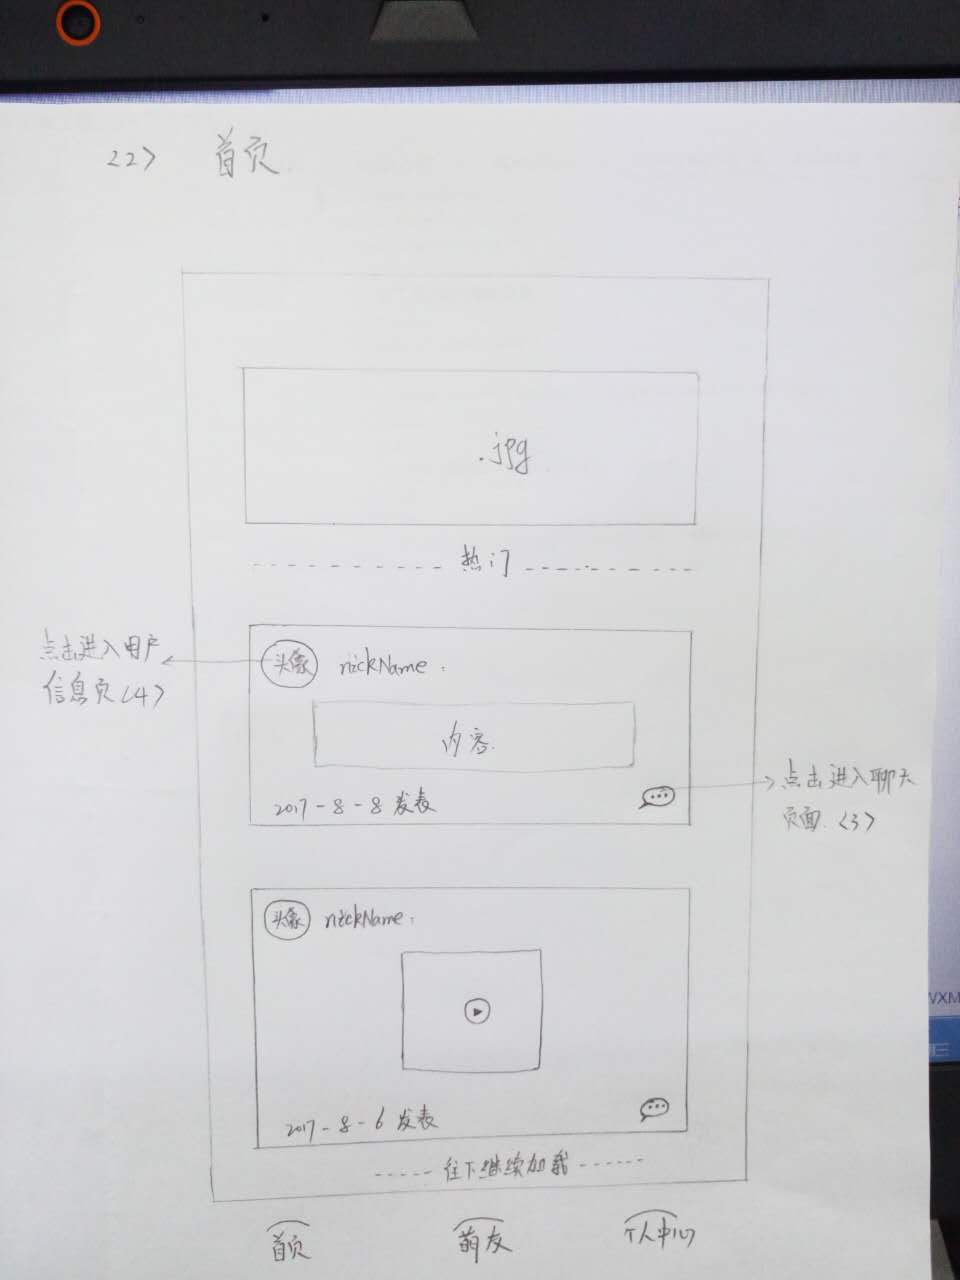 <2> 首页
.jpg
热门
点击进入用户
信息页<4>
头像 nickName:
内容
2017-8-8 发表
点击进入聊天
页面.<3>
头像 nickName:
2017-8-6 发表
往下继续加载
首页 萌友 个人中心
WXM